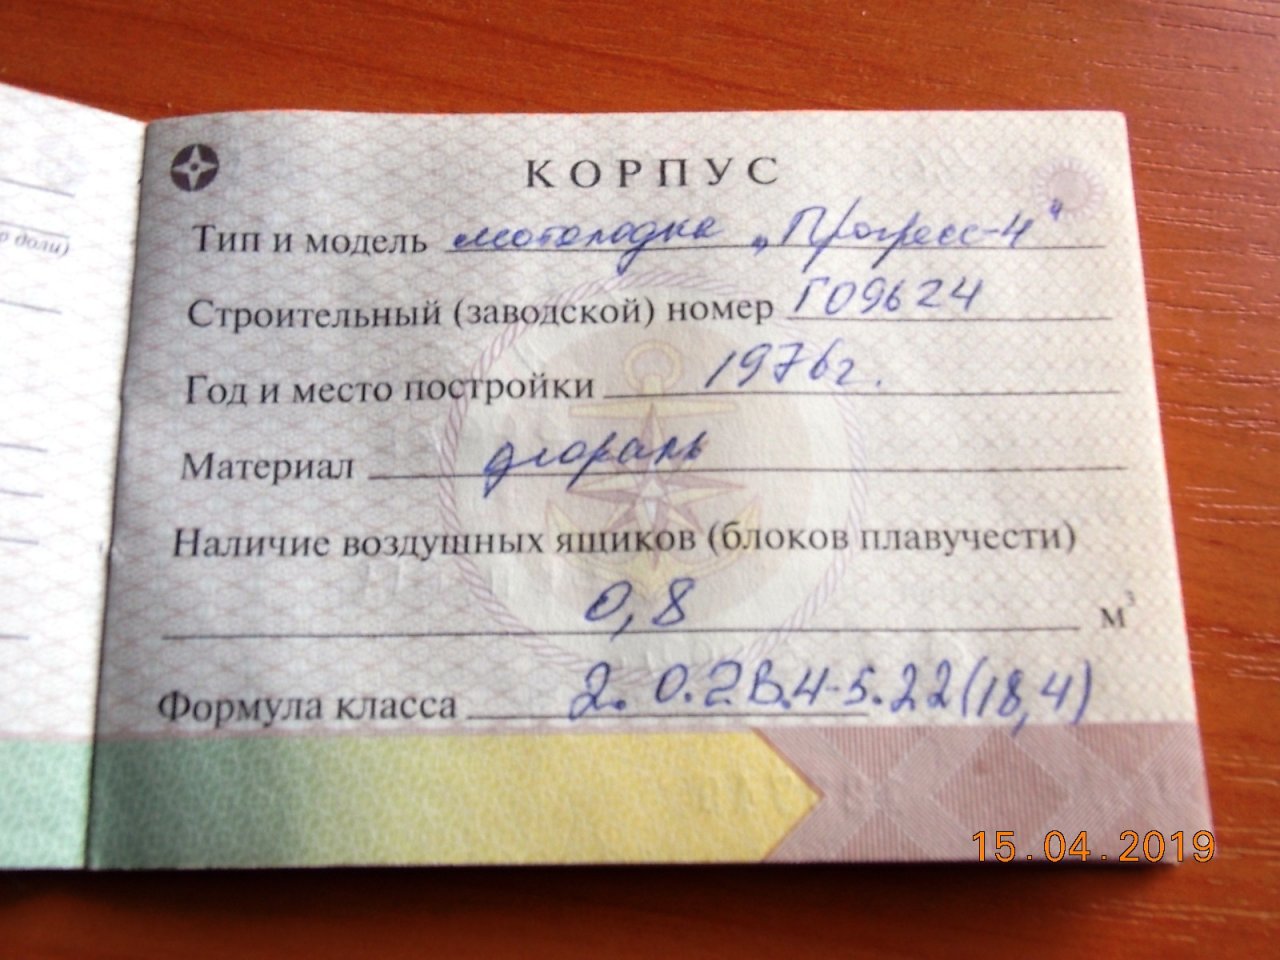 р доли)
КОРПУС
Тип и модель мотолодка „Прогресс-4"
Строительный (заводской) номер Г09624
Год и место постройки 1976г.
Материал дюраль
Наличие воздушных ящиков (блоков плавучести)
0,8 м³
Формула класса 2.0.2В.4-5.22(18,4)
15.04.2019